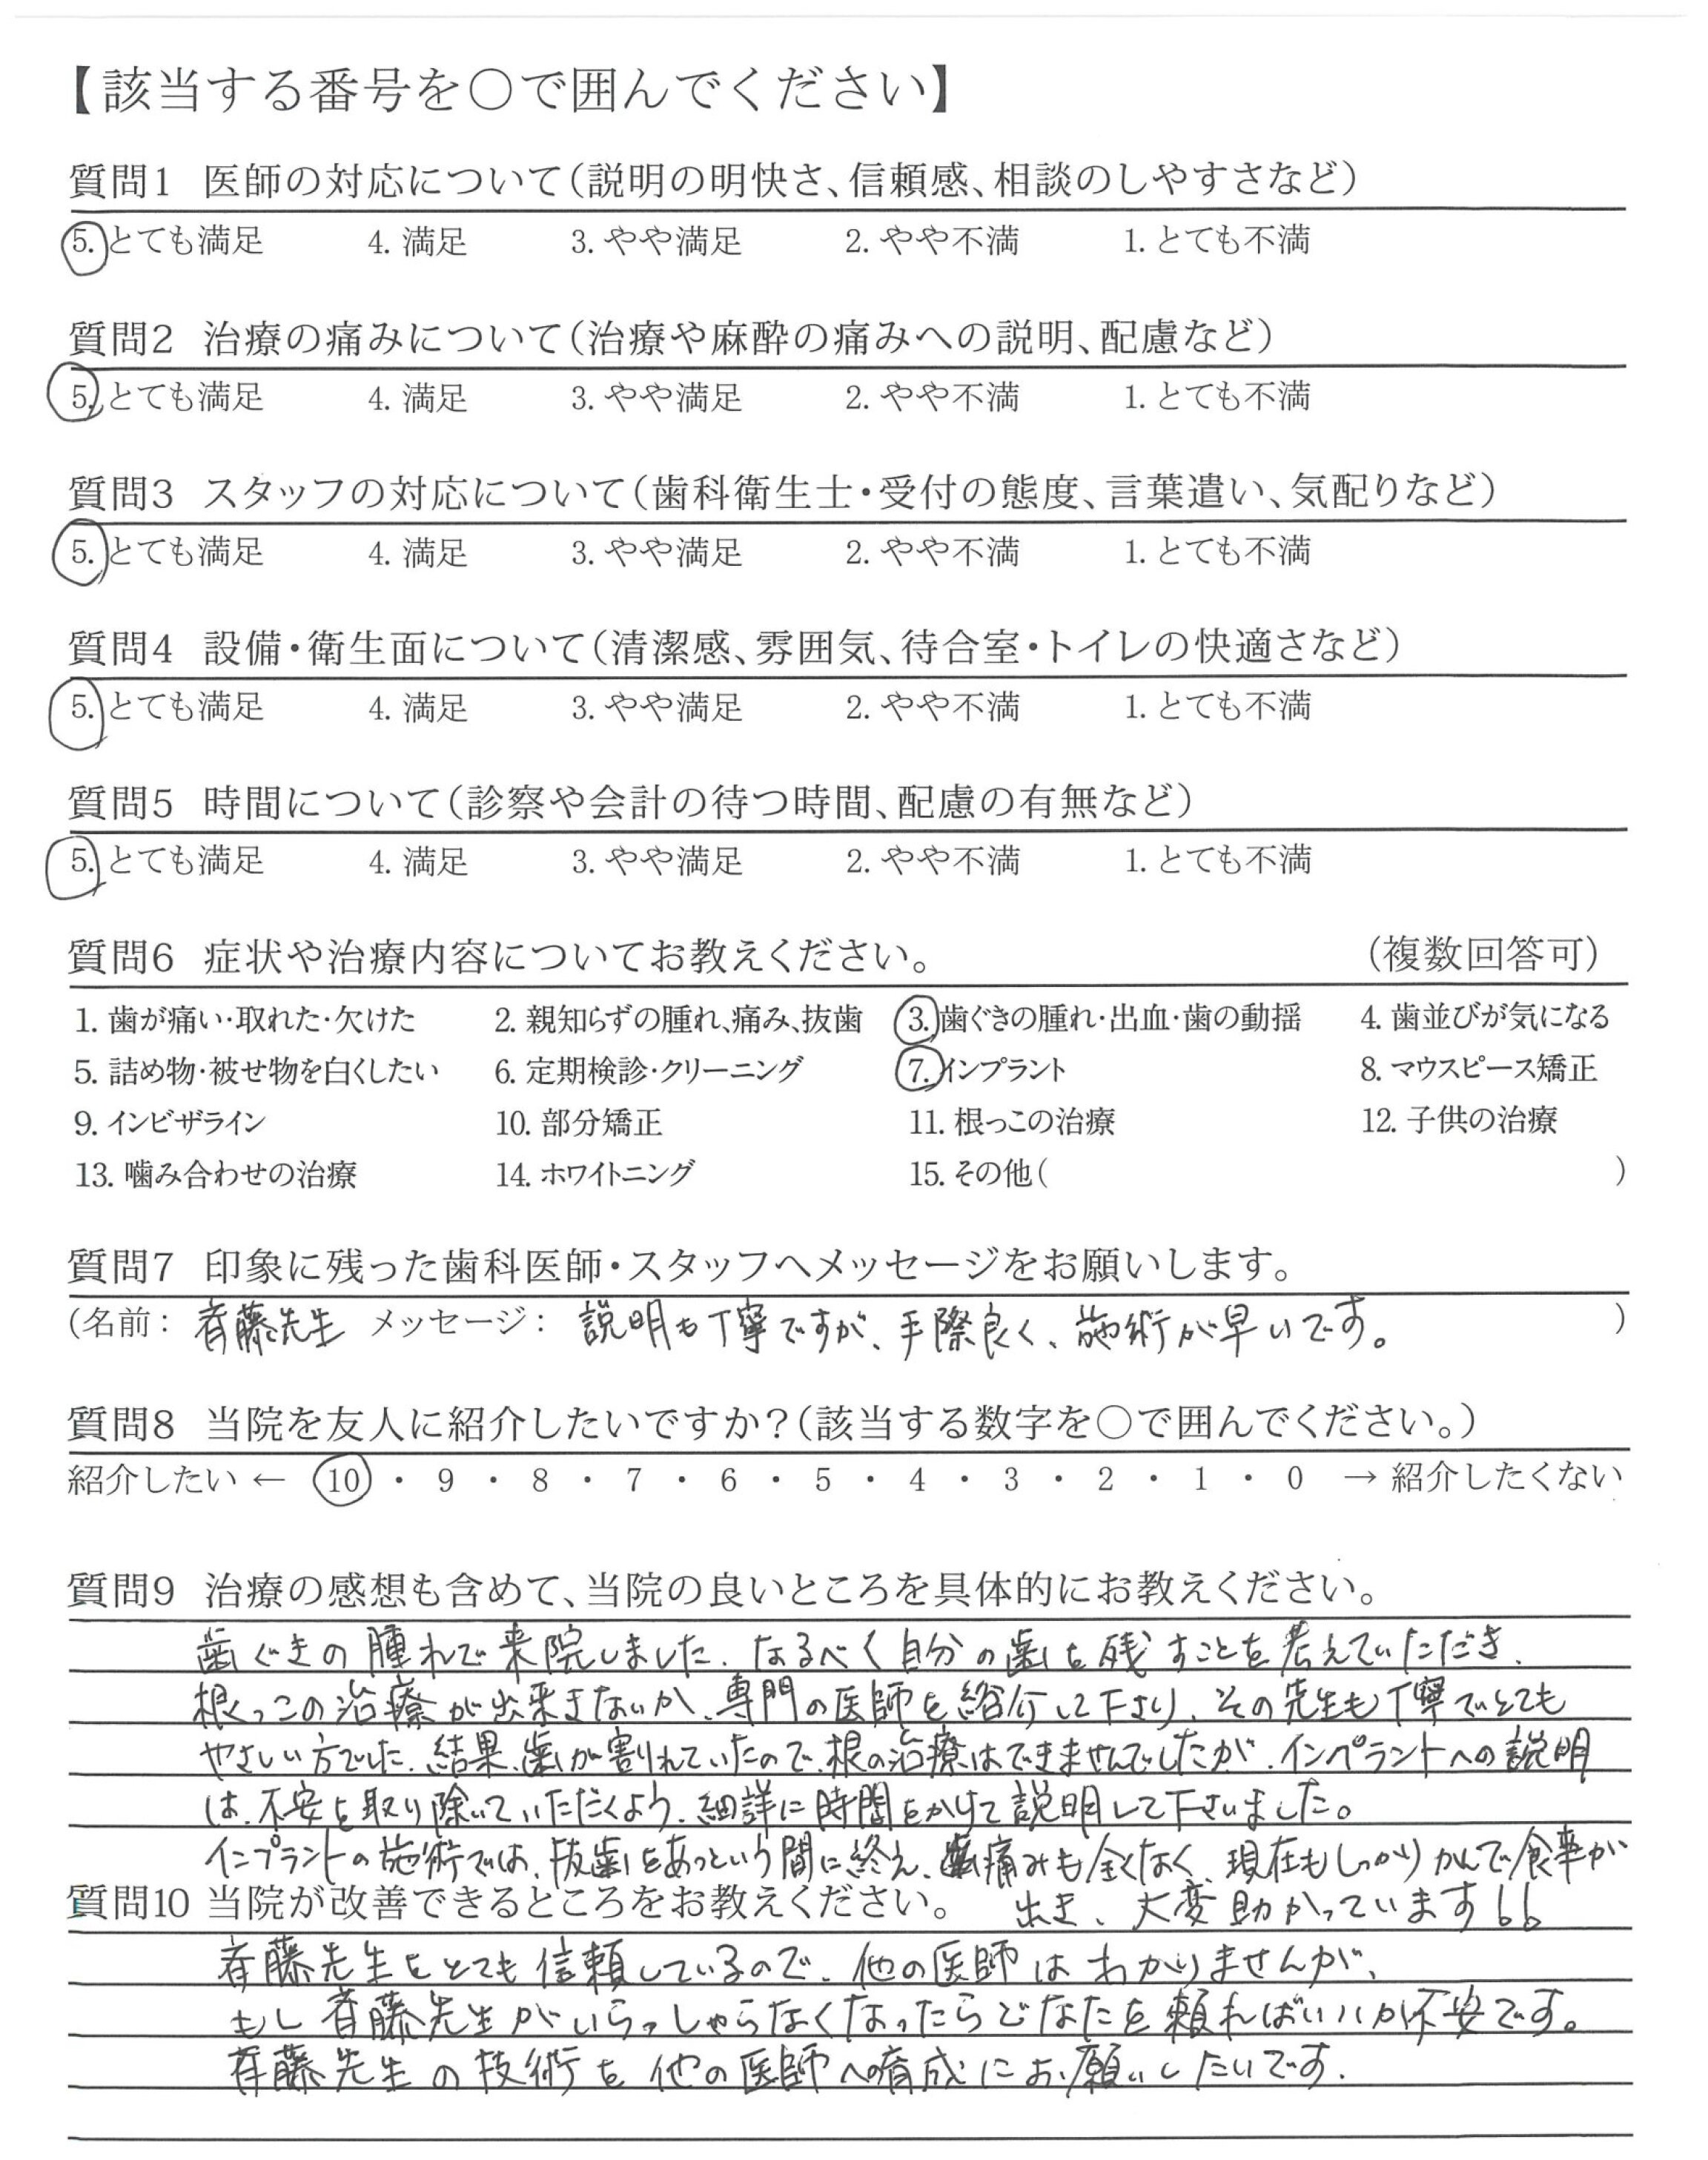 【該当する番号を○で囲んでください】
質問1 医師の対応について(説明の明快さ、信頼感、相談のしやすさなど)
5. とても満足 4. 満足 3. やや満足 2. やや不満 1. とても不満
質問2 治療の痛みについて(治療や麻酔の痛みへの説明、配慮など)
5. とても満足 4. 満足 3. やや満足 2. やや不満 1. とても不満
質問3 スタッフの対応について(歯科衛生士・受付の態度、言葉遣い、気配りなど)
5. とても満足 4. 満足 3. やや満足 2. やや不満 1. とても不満
質問4 設備・衛生面について(清潔感、雰囲気、待合室・トイレの快適さなど)
5. とても満足 4. 満足 3. やや満足 2. やや不満 1. とても不満
質問5 時間について(診察や会計の待つ時間、配慮の有無など)
5. とても満足 4. 満足 3. やや満足 2. やや不満 1. とても不満
質問6 症状や治療内容についてお教えください。 (複数回答可)
1. 歯が痛い・取れた・欠けた 2. 親知らずの腫れ、痛み、抜歯 3. 歯ぐきの腫れ・出血・歯の動揺 4. 歯並びが気になる
5. 詰め物・被せ物を白くしたい 6. 定期検診・クリーニング 7. インプラント 8. マウスピース矯正
9. インビザライン 10. 部分矯正 11. 根っこの治療 12. 子供の治療
13. 噛み合わせの治療 14. ホワイトニング 15. その他( )
質問7 印象に残った歯科医師・スタッフへメッセージをお願いします。
(名前: 斉藤先生 メッセージ: 説明も丁寧ですが、手際良く、施術が早いです。 )
質問8 当院を友人に紹介したいですか?(該当する数字を○で囲んでください。)
紹介したい ← 10 ・ 9 ・ 8 ・ 7 ・ 6 ・ 5 ・ 4 ・ 3 ・ 2 ・ 1 ・ 0 → 紹介したくない
質問9 治療の感想も含めて、当院の良いところを具体的にお教えください。
歯ぐきの腫れで来院しました。なるべく自分の歯を残すことを考えていただき、
根っこの治療が出来きないか、専門の医師を紹介して下さり、その先生も丁寧でとても
やさしい方でした。結果、歯が割れていたので、根の治療はできませんでしたが、インペラントへの説明
は、不安を取り除いていただくよう、細詳に時間をかけて説明して下さいました。
インプラントの施術では、抜歯をあっという間に終え、痛みも全くなく、現在もしっかりかんで食事が
出き、大変助かっています!!
質問10 当院が改善できるところをお教えください。
斉藤先生をとても信頼しているので、他の医師はわかりませんが、
もし斉藤先生がいらっしゃらなくなったらどなたを頼ればいいか不安です。
斉藤先生の技術を他の医師への育成にお願いしたいです。